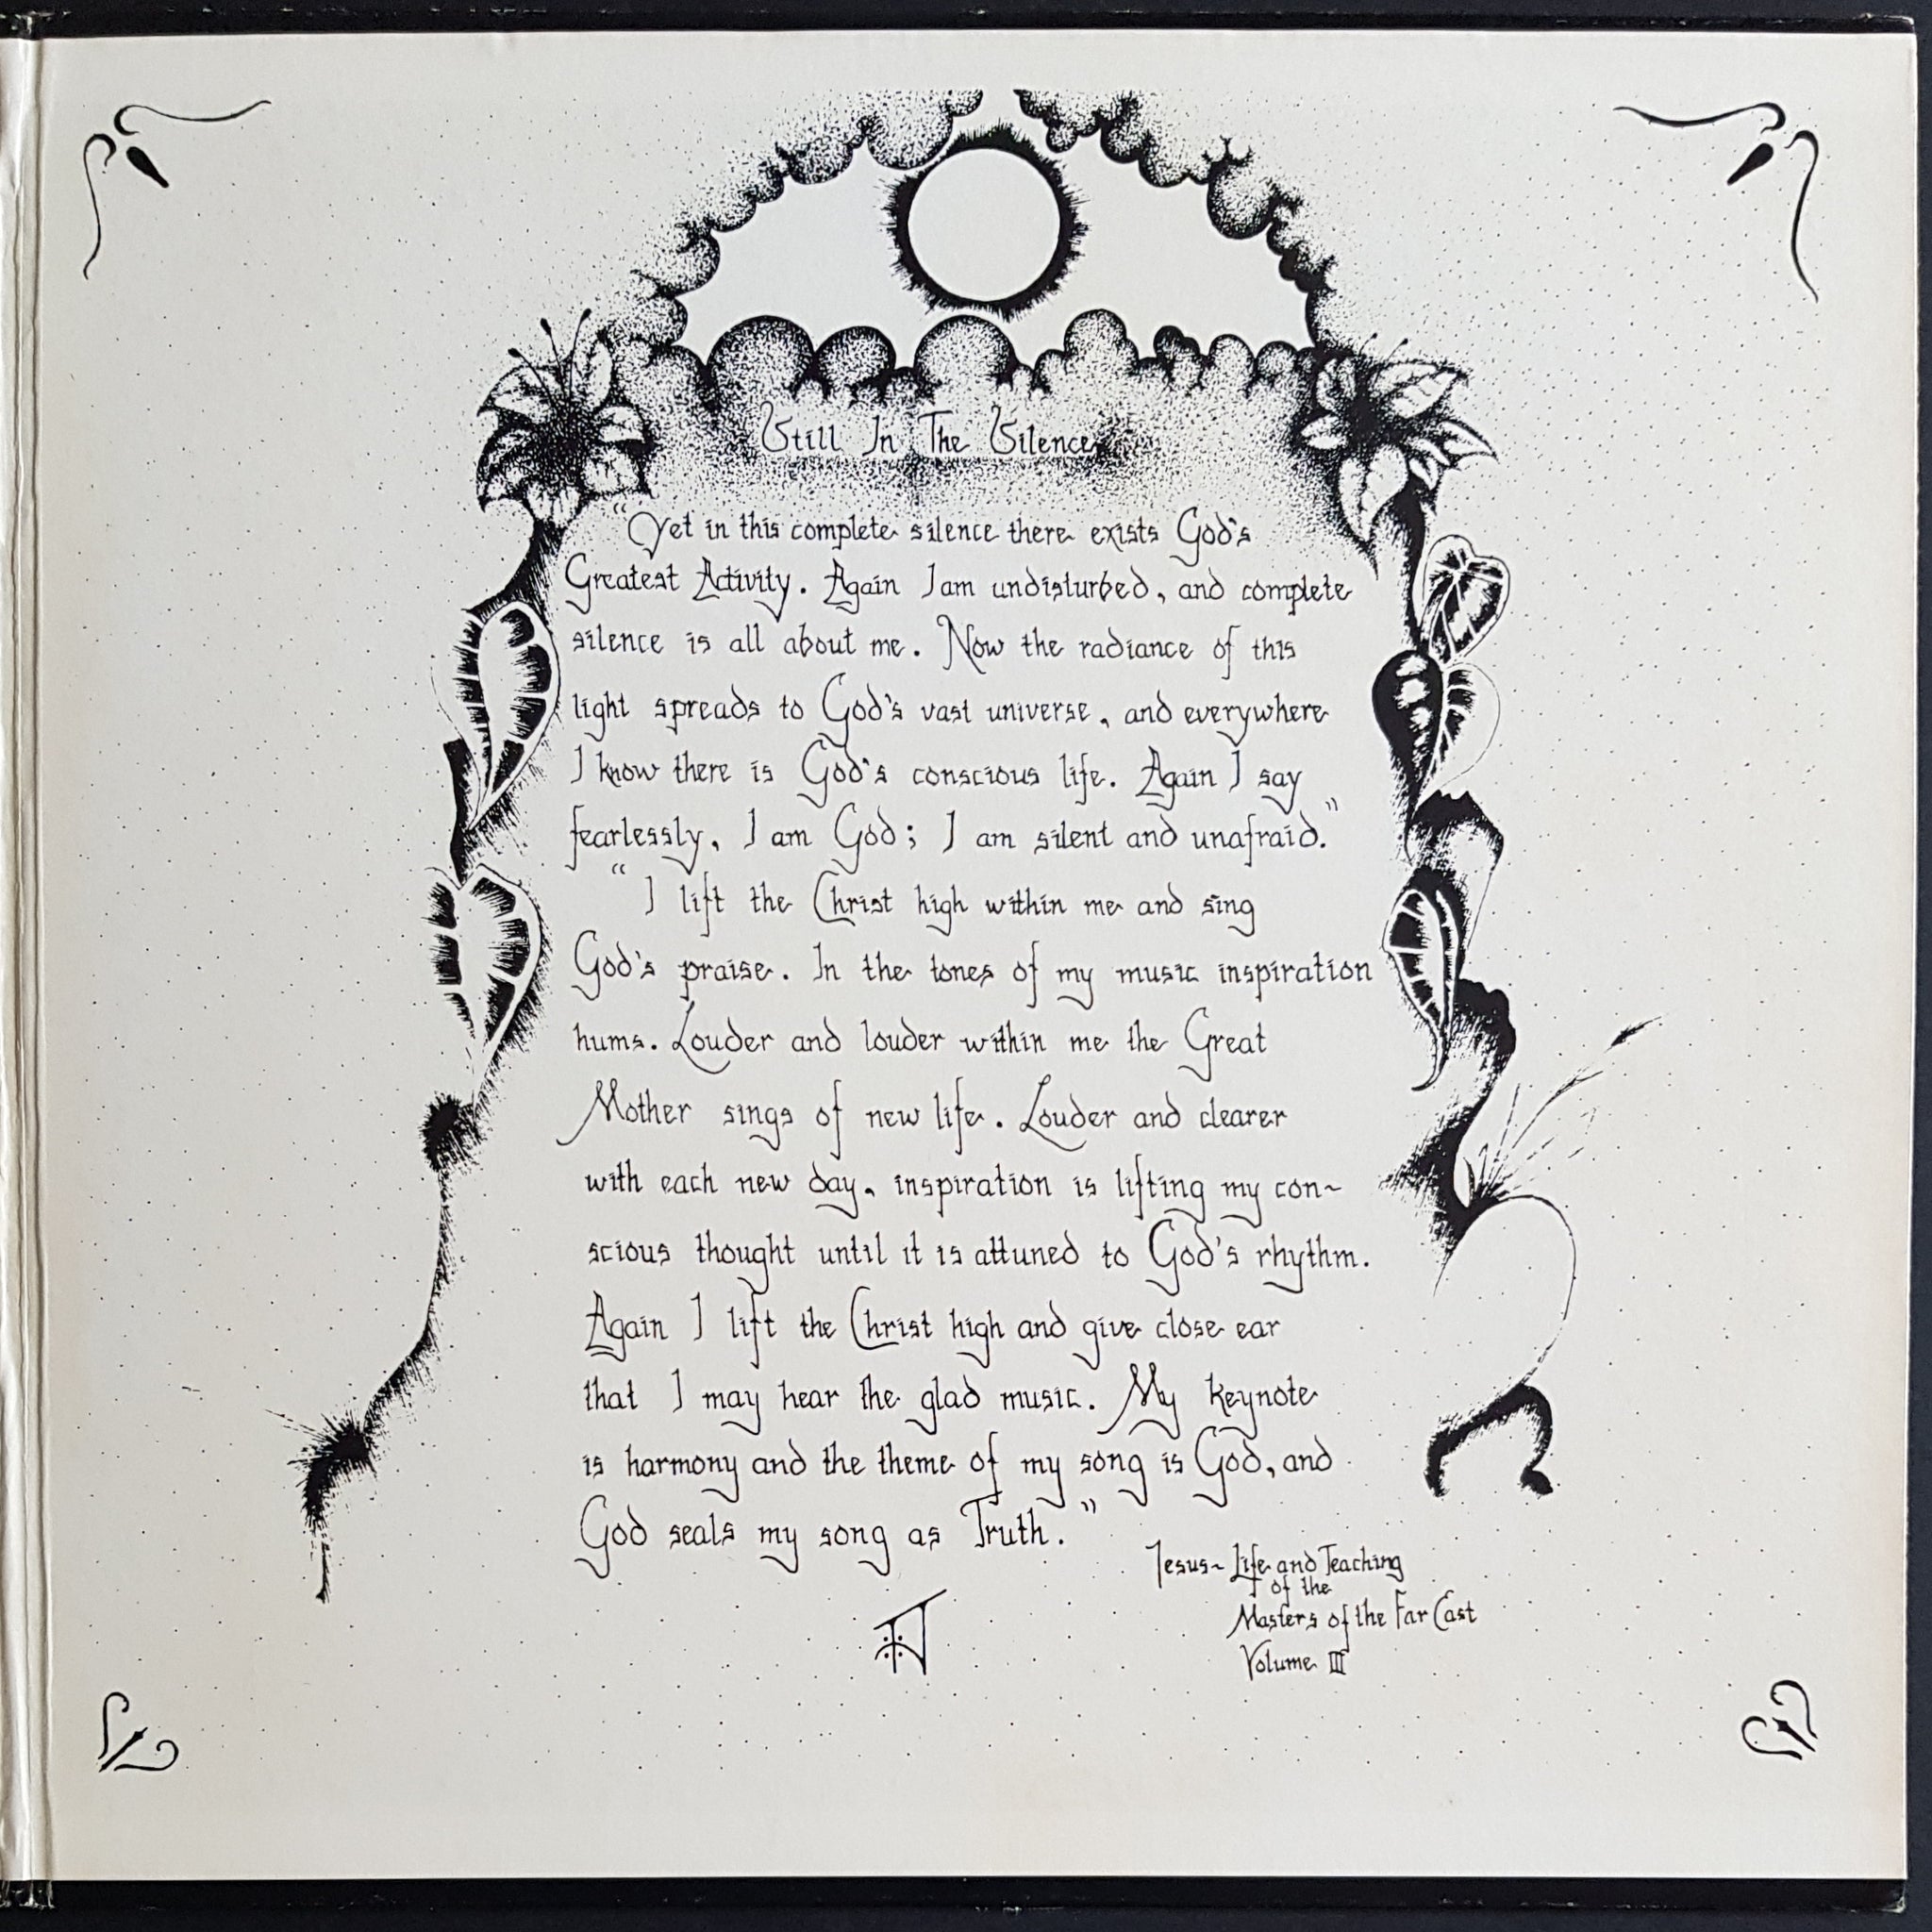 Still In The Silence
"Yet in this complete silence there exists God's
Greatest Activity. Again I am undisturbed, and complete
silence is all about me. Now the radiance of this
light spreads to God's vast universe, and everywhere
I know there is God's conscious life. Again I say
fearlessly, I am God; I am silent and unafraid."
"I lift the Christ high within me and sing
God's praise. In the tones of my music inspiration
hums. Louder and louder within me the Great
Mother sings of new life. Louder and clearer
with each new day, inspiration is lifting my con~
scious thought until it is attuned to God's rhythm.
Again I lift the Christ high and give close ear
that I may hear the glad music. My keynote
is harmony and the theme of my song is God, and
God seals my song as Truth."
Jesus~ Life and Teaching
of the
Masters of the Far East
Volume III